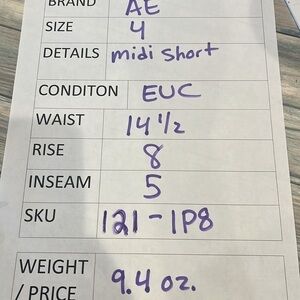 BRAND AE
SIZE 4
DETAILS midi short
CONDITON EUC
WAIST 14 1/2
RISE 8
INSEAM 5
SKU 121-1P8
WEIGHT
/ PRICE 9.4 oz.